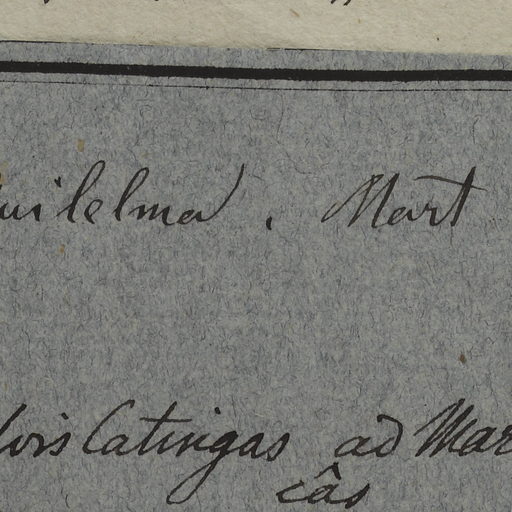 uilelma . Mart
Catingas ad Mar
câs